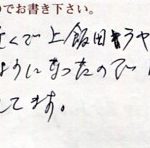 のでお書き下さい。
近くで上飯田キラヤ
ようになったので
てます。